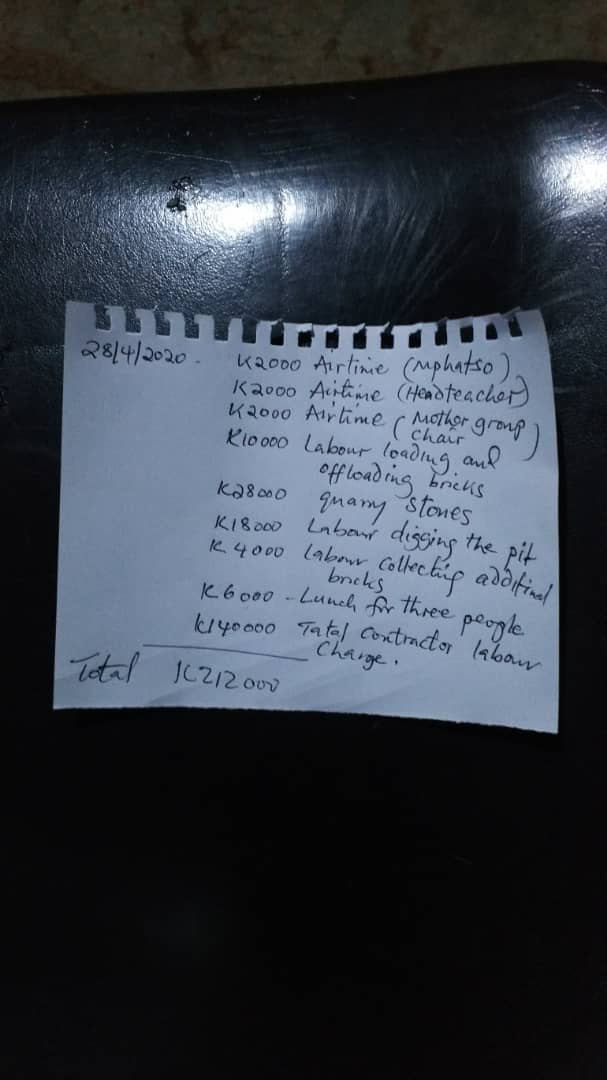 28/4/2020. K2000 Airtime (Mphatso)
K2000 Airtime (Headteacher)
K2000 Airtime (Mother group
chair)
K10000 Labour loading and
offloading bricks
K28000 quarry stones
K18000 Labour digging the pit
K4000 Labour collecting additinal
bricks
K6000 - Lunch for three people
K140000 Tatal contractor labour
Charge.
Total K212000